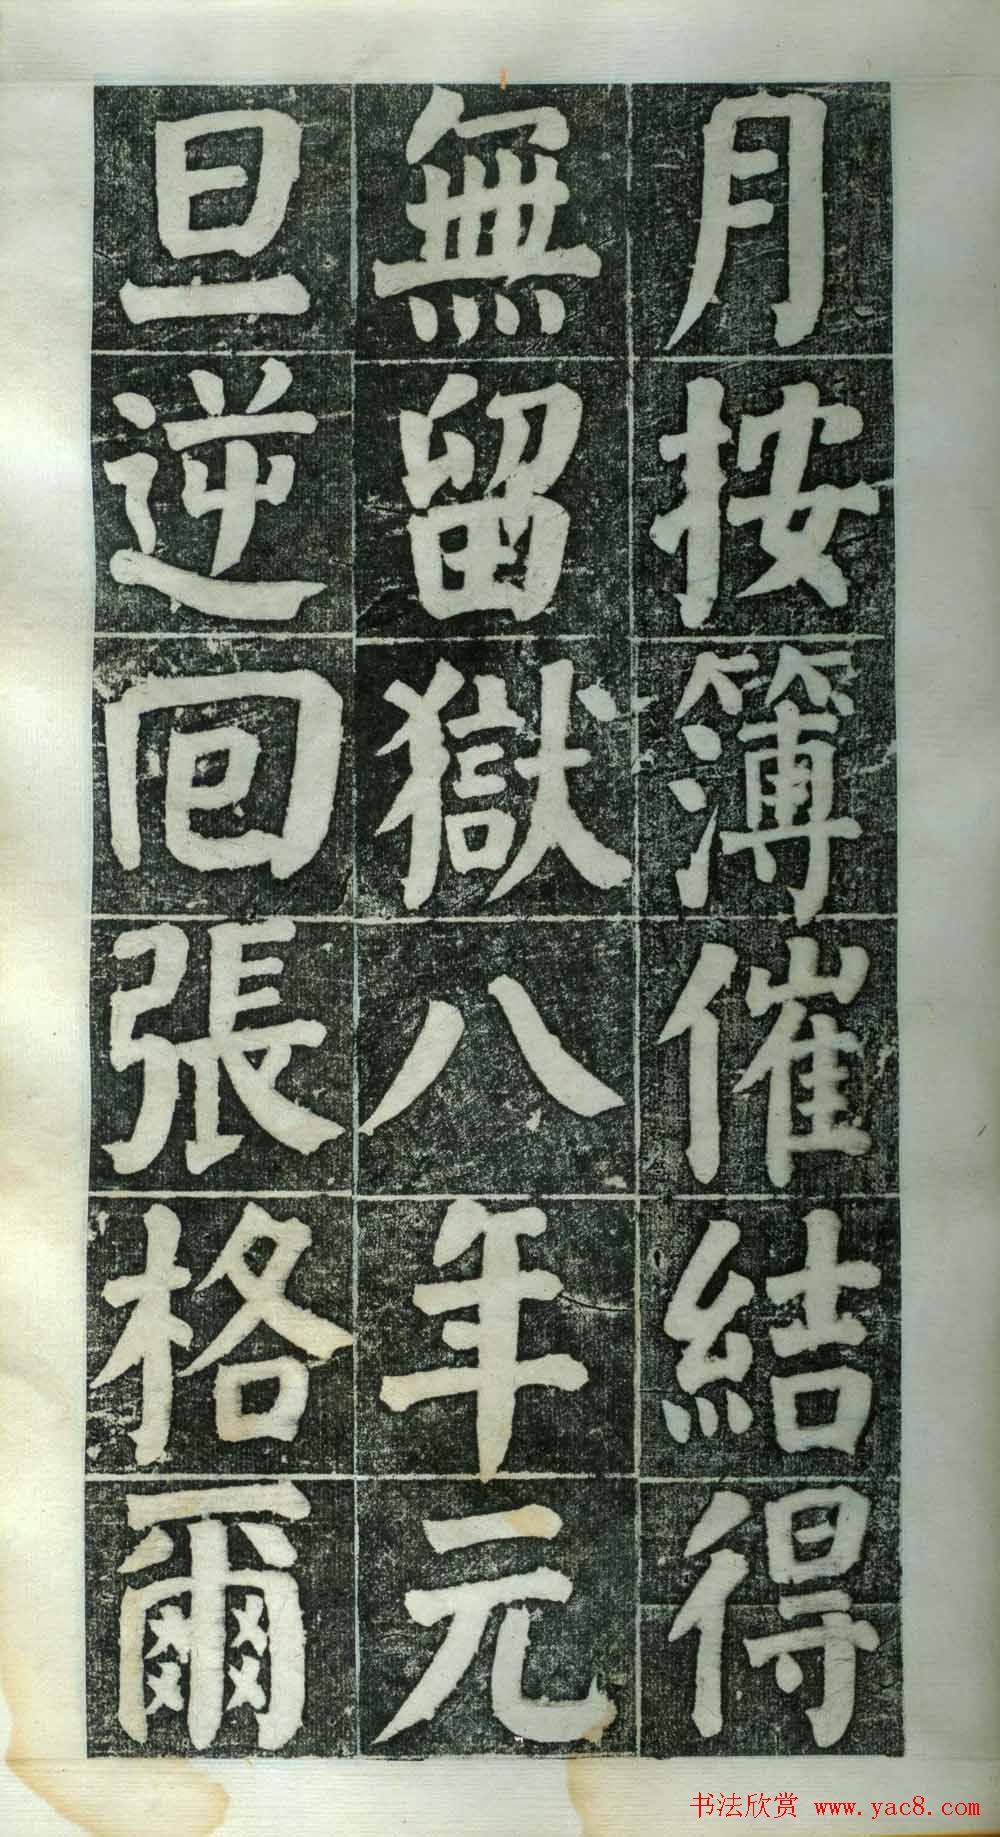 月按簿催結得
無留獄八年元
旦逆回張格爾
书法欣赏 www.yac8.com